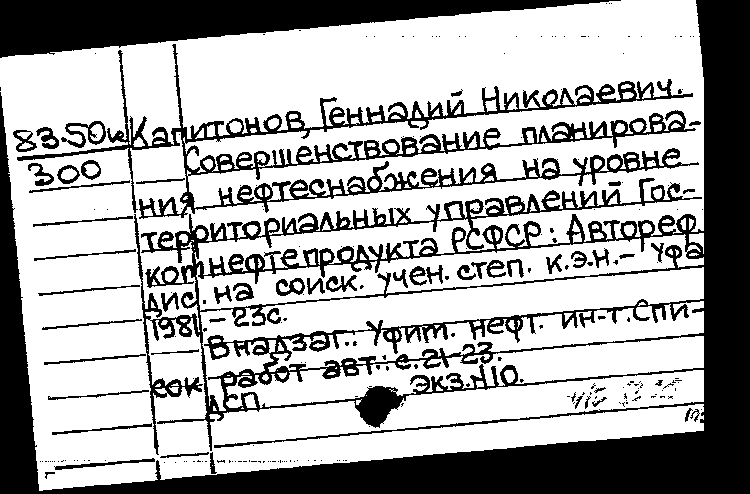 83.50к Капитонов, Геннадий Николаевич.
300 Совершенствование планирова-
ния нефтеснабжения на уровне
территориальных управлений Гос-
комнефтепродукта РСФСР: Автореф.
дис. на соиск. учен. степ. к.э.н.- Уфа
1981.- 23с.
В надзаг.: Уфим. нефт. ин-т. Спи-
сок работ авт.: с. 21-23.
ДСП. Экз.N10.